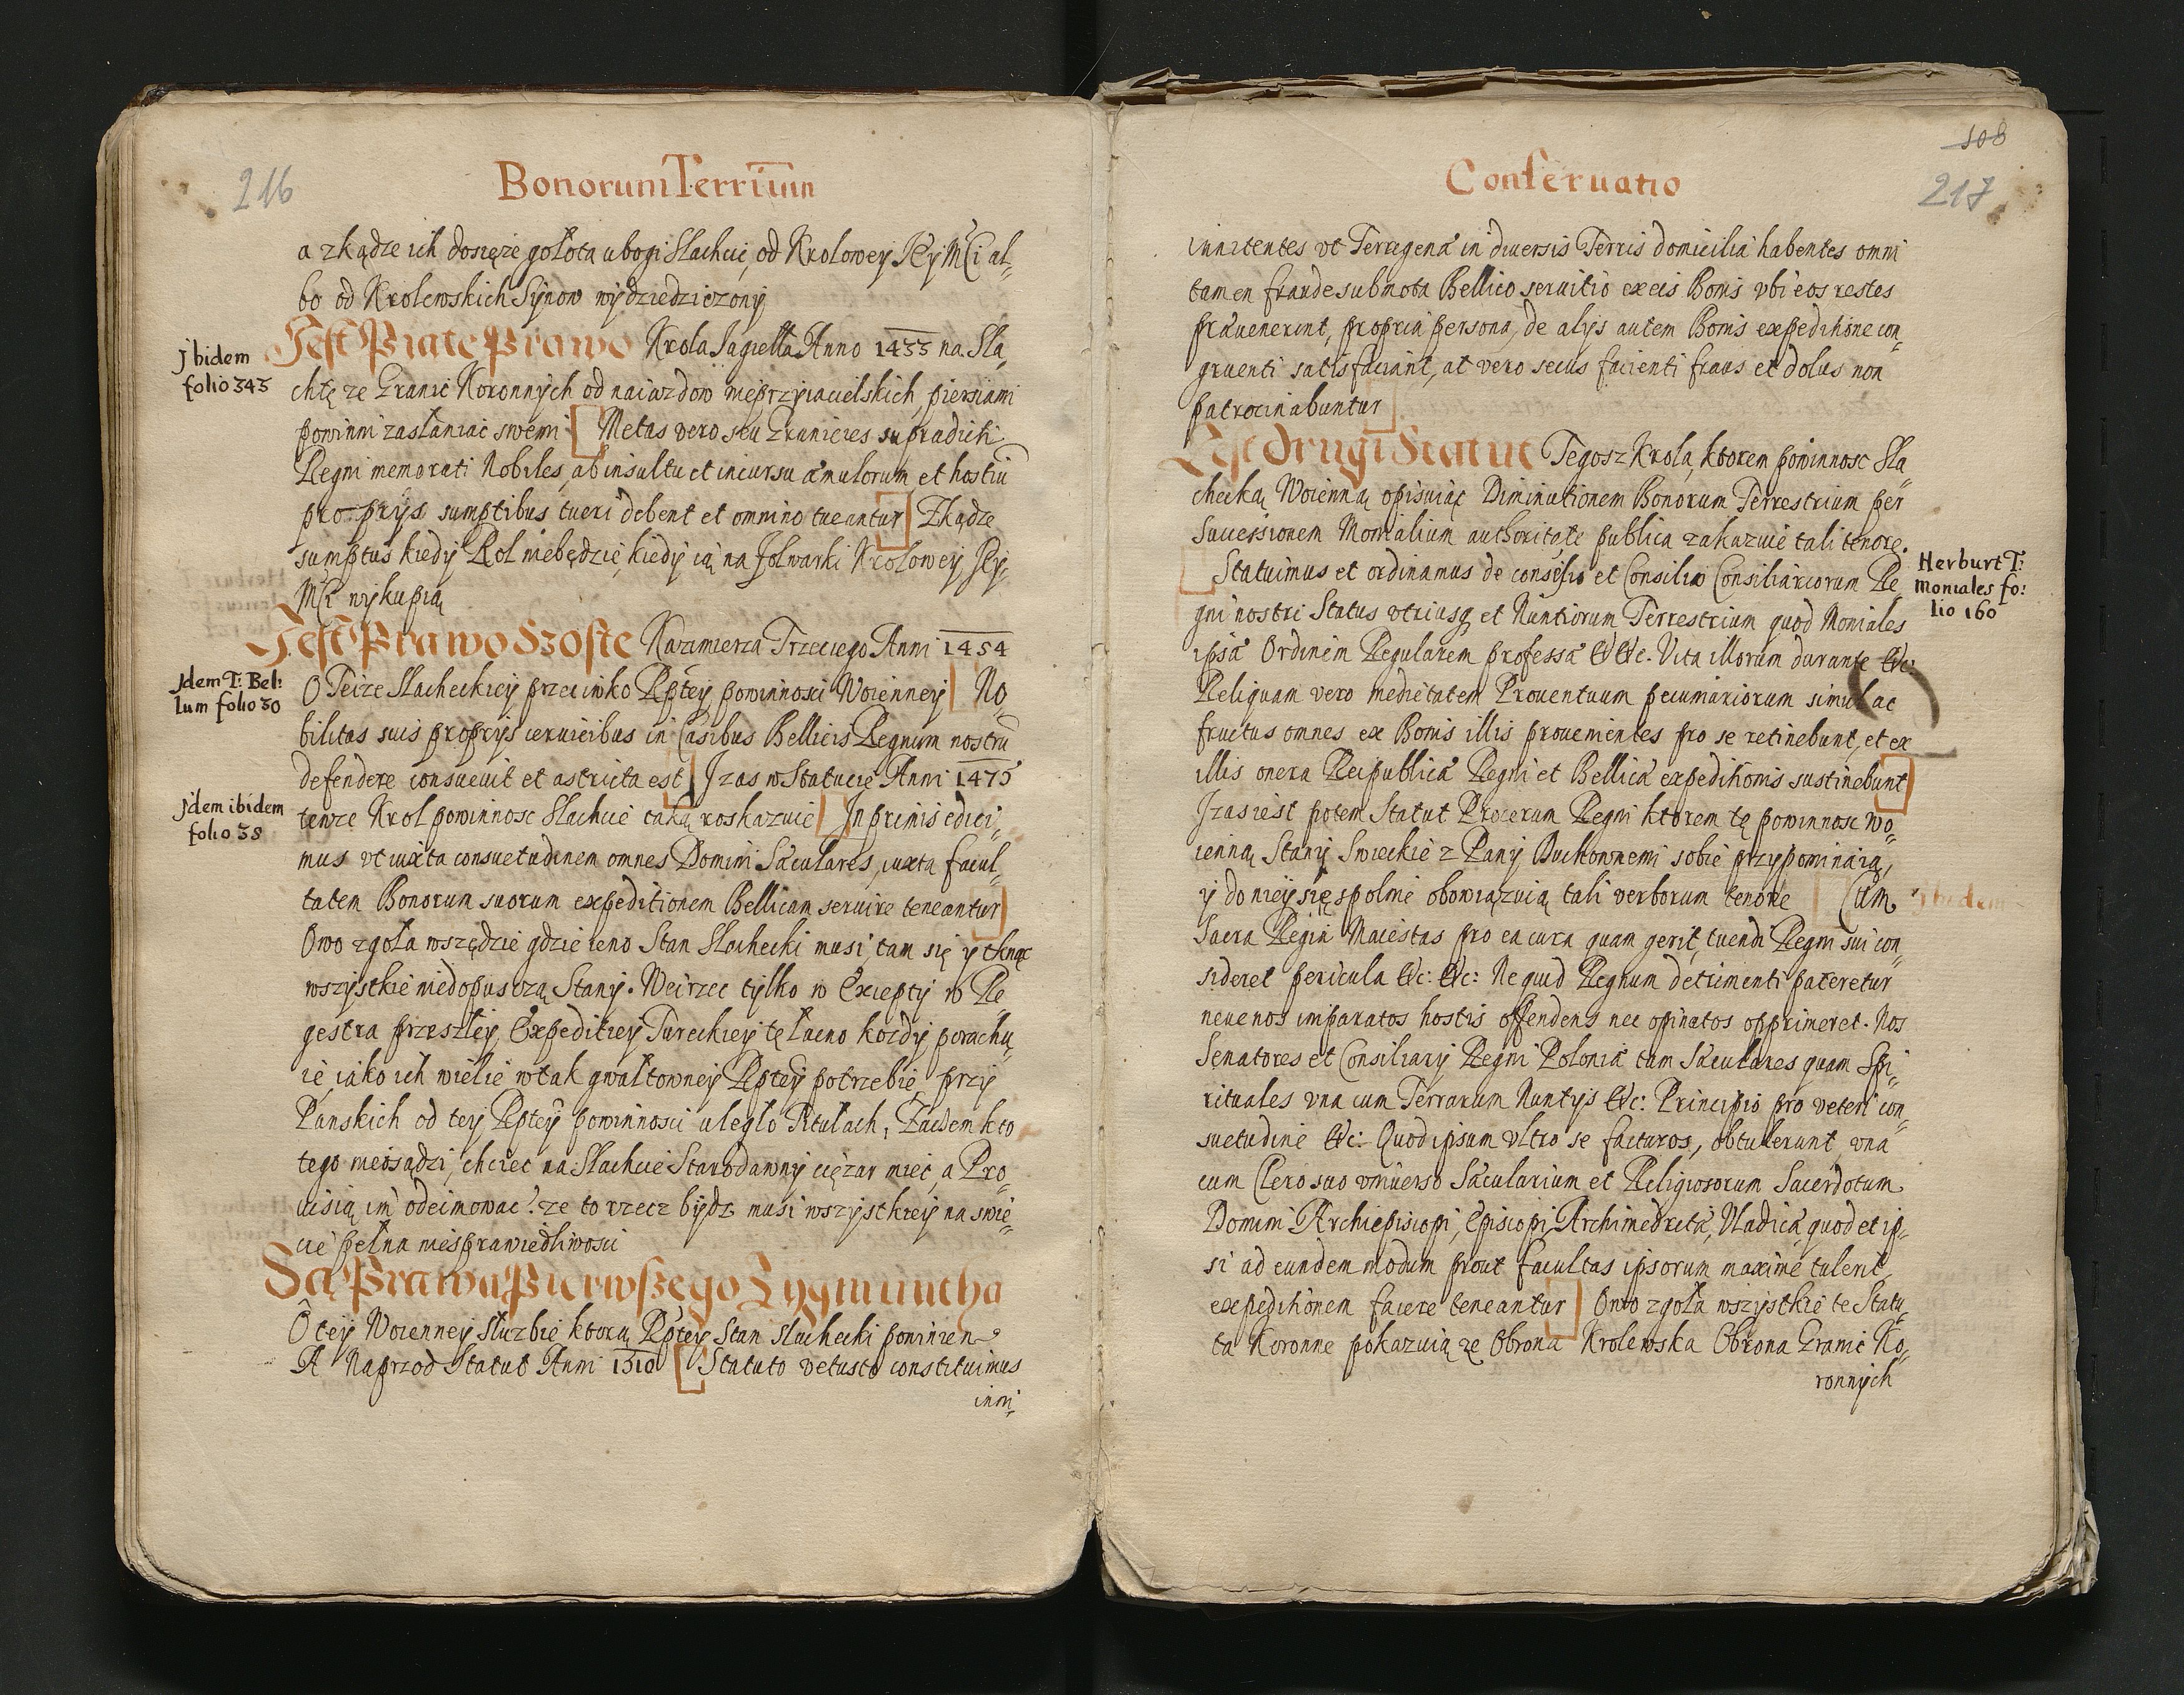 216
Bonorum Terrium
a zkądze ich dosięże gołota ubogi Slachcic, od Krolowey Jey Mści al-
bo od Krolewskich Synow wydziedziczony
Jest Piąte Prawo Krola Jagiełła Anno 1433 na Sla-
Jbidem
folio 343
chtę ze Granic Koronnych od naiazdow nieprzyiacielskich, piersiami
powinni zasłaniac swemi [Metas vero seu Granicies supradicti
Regni memorati Nobiles, ab insultu et incursu æmulorum et hostiū
proprijs sumptibus tueri debent et omnino tueantur] Zkądze
sumptus kiedy Rol niebędzie, kiedy ią na folwarki Krolowey Jey
Mści wykupią
Jest Prawo Szoste Kazimierza Trzeciego Anni 1454
Jdem T: Bel:
lum folio 30
O Teize Slacheckiey przeciwko Rptey powinnosci Woienney [No-
bilitas suis proprijs cervicibus in Casibus Bellicis Regnum nostrū
defendere consuevit et astricta est] Jzas w Statucie Anni 1475
Jdem ibidem
folio 38
tenze Krol powinnosc Slachcie taką roskazuie [Jn primis edici-
mus vt iuxta consuetudinem omnes Domini Sæculares, iuxta facul-
tatem Bonorum suorum expeditionem Bellicam servire teneantur]
Owo zgoła wszędzie gdzie ieno Stan Slachecki musi, tam się y tknąc
wszystkie niedopuszczą Stany. Weirzec tylko w Excepty w Re-
gestra przeszłey Expeditiey Tureckiey tę łacno kozdy porachu-
ie, iako ich wielie w tak gwałtowney Rptey potrzebie przy
Panskich od tey Rptey powinnosci uległo Titulach, Zaczem kto
tego nieosądzi, chciec na Slachcie Starodawny ciężar miec, a Pro-
uisią im odeimowac? ze to rzecz bydz musi wszystkiey na swie-
cie pełna niesprawiedliwosci
Są Prawa Pierwszego Zygmuntha
O tey Woienney słuzbie ktorą Rptey Stan slachecki powinien
A Naprzod Statut Anni 1510 [Statuto vetusto constituimus
inni-
108
217
Conseruatio
innitentes vt Terrigenæ in diuersis Terris domicilia habentes omni
tamen fraude submota Bellico seruitio ex eis Bonis vbi eos restes
præuenerint, propria persona, de alijs autem Bonis expeditione con-
gruenti satisfaciant, at vero secus facienti fraus et dolus non
patrocinabuntur]
Jest drugi Statut Tegosz Krola, ktorem powinnosc Sla-
checką Woienną opisuiąc Diminutionem Bonorum Terrestrium per
Successionem Monialium authoritate publica zakazuie tali tenore.
Herburt T:
moniales fo:
lio 160
[Statuimus et ordinamus de consēsu et Consilio Consiliariorum Re-
gni nostri Status vtriusq et Nuntiorum Terrestrium quod Moniales
ipsæ Ordinem Regularem professæ &c &c. Vita illorum durante &c:
Reliquam vero medietatem Prouentuum pecuniariorum simul ac
fructus omnes ex Bonis illis prouenientes pro se retinebunt, et ex
illis onera Reipublicæ Regni et Bellicæ expeditionis sustinebunt]
Jzas iest potem Statut Procerum Regni ktorem tę powinnosc Wo-
ienną Stany Swieckie z Pany Duchownemi sobie przypominaią,
y do niey się spolnie obowiązuią tali verborum tenore [Cum
Jbidem
Sacra Regia Maiestas pro ea cura quam gerit, tuendi Regni sui con-
sideret pericula &c: &c: Ne quid Regnum detrimenti pateretur
neue nos imparatos hostis offendens nec opinatos opprimeret. Nos
Senatores et Consiliarij Regni Poloniæ tam Sæculares quam Spi-
rituales vna cum Terrarum Nuntijs &c: Principio pro veteri con-
suetudine &c: Quod ipsum vltro se facturos, obtulerunt, vna
cum Clero suo vniuerso Sæcularium et Religiosorum Sacerdotum
Domini Archiepiscopi, Episcopi, Archimedritæ, Vladicæ, quod et ip-
si ad eundem modum prout facultas ipsorum maxime tulerit
expeditionem facere teneantur] Owo zgoła wszystkie te Statu-
ta Koronne pokazuią ze Obrona Krolewska Obrona Granic Ko-
ronnych